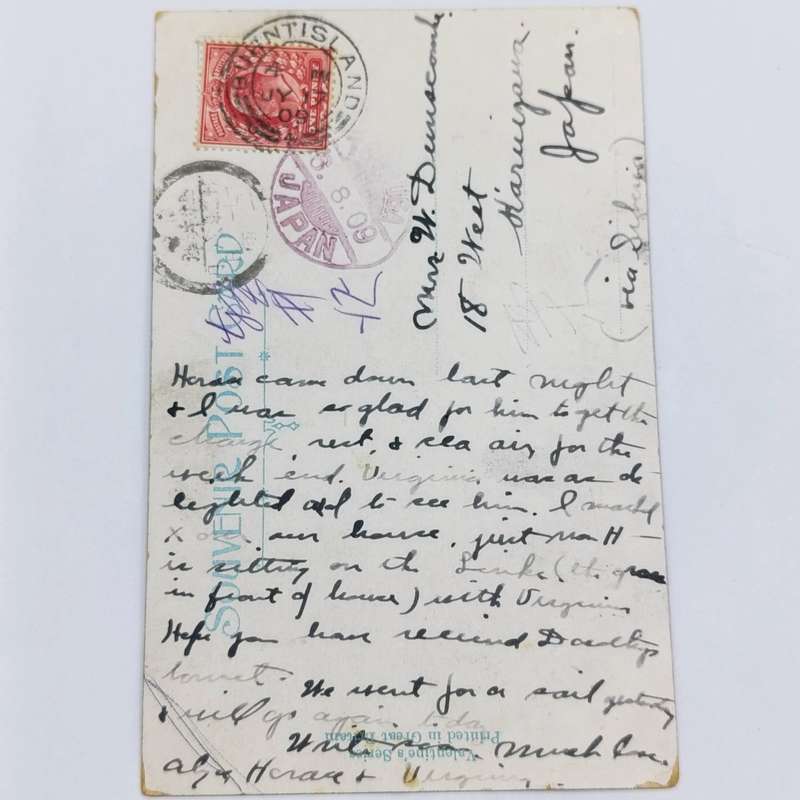 JY 17
09
8.09
JAPAN
Mrs W. Dunscomb
18 West
Karuizawa
Japan.
(via Siberia)
SOUVENIR POST CARD
Horace came down last night
& I was so glad for him to get the
change, rest, & sea air for the
week end. Virginia was as de-
lighted as I to see him. I marked
X over our house, just now H—
is sitting on the Links (the grass
in front of house) with Virginia
Hope you have received Dorothy's
bonnet. We went for a sail yesterday
& will go again today
Write soon. Much love.
Horace & Virginia.
Valentine's Series
Printed in Great Britain